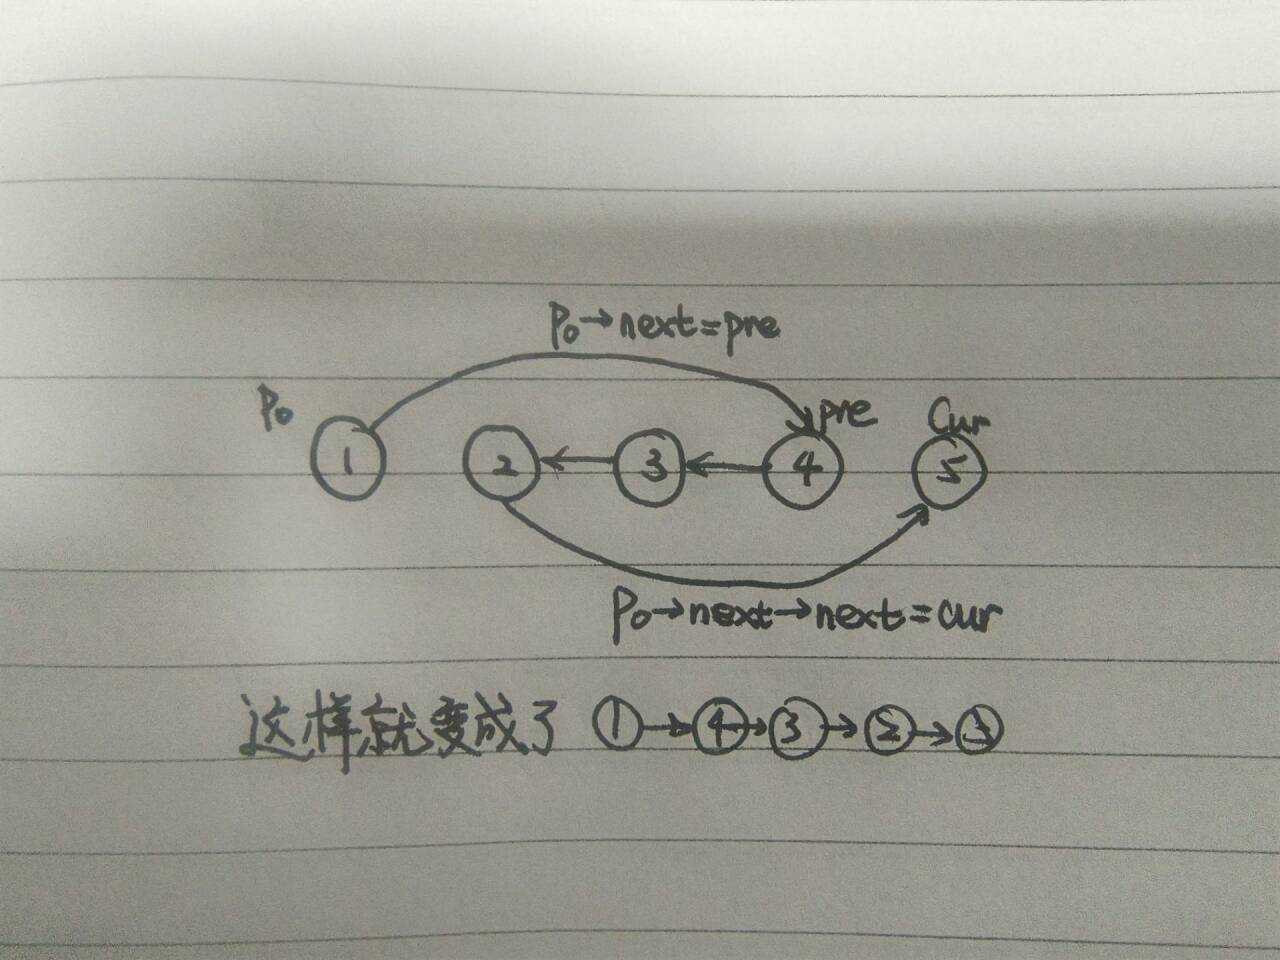 P₀→next=pre
P₀ pre Cur
1 2 3 4 5
P₀→next→next=cur
这样就变成了 ①→④→③→②→